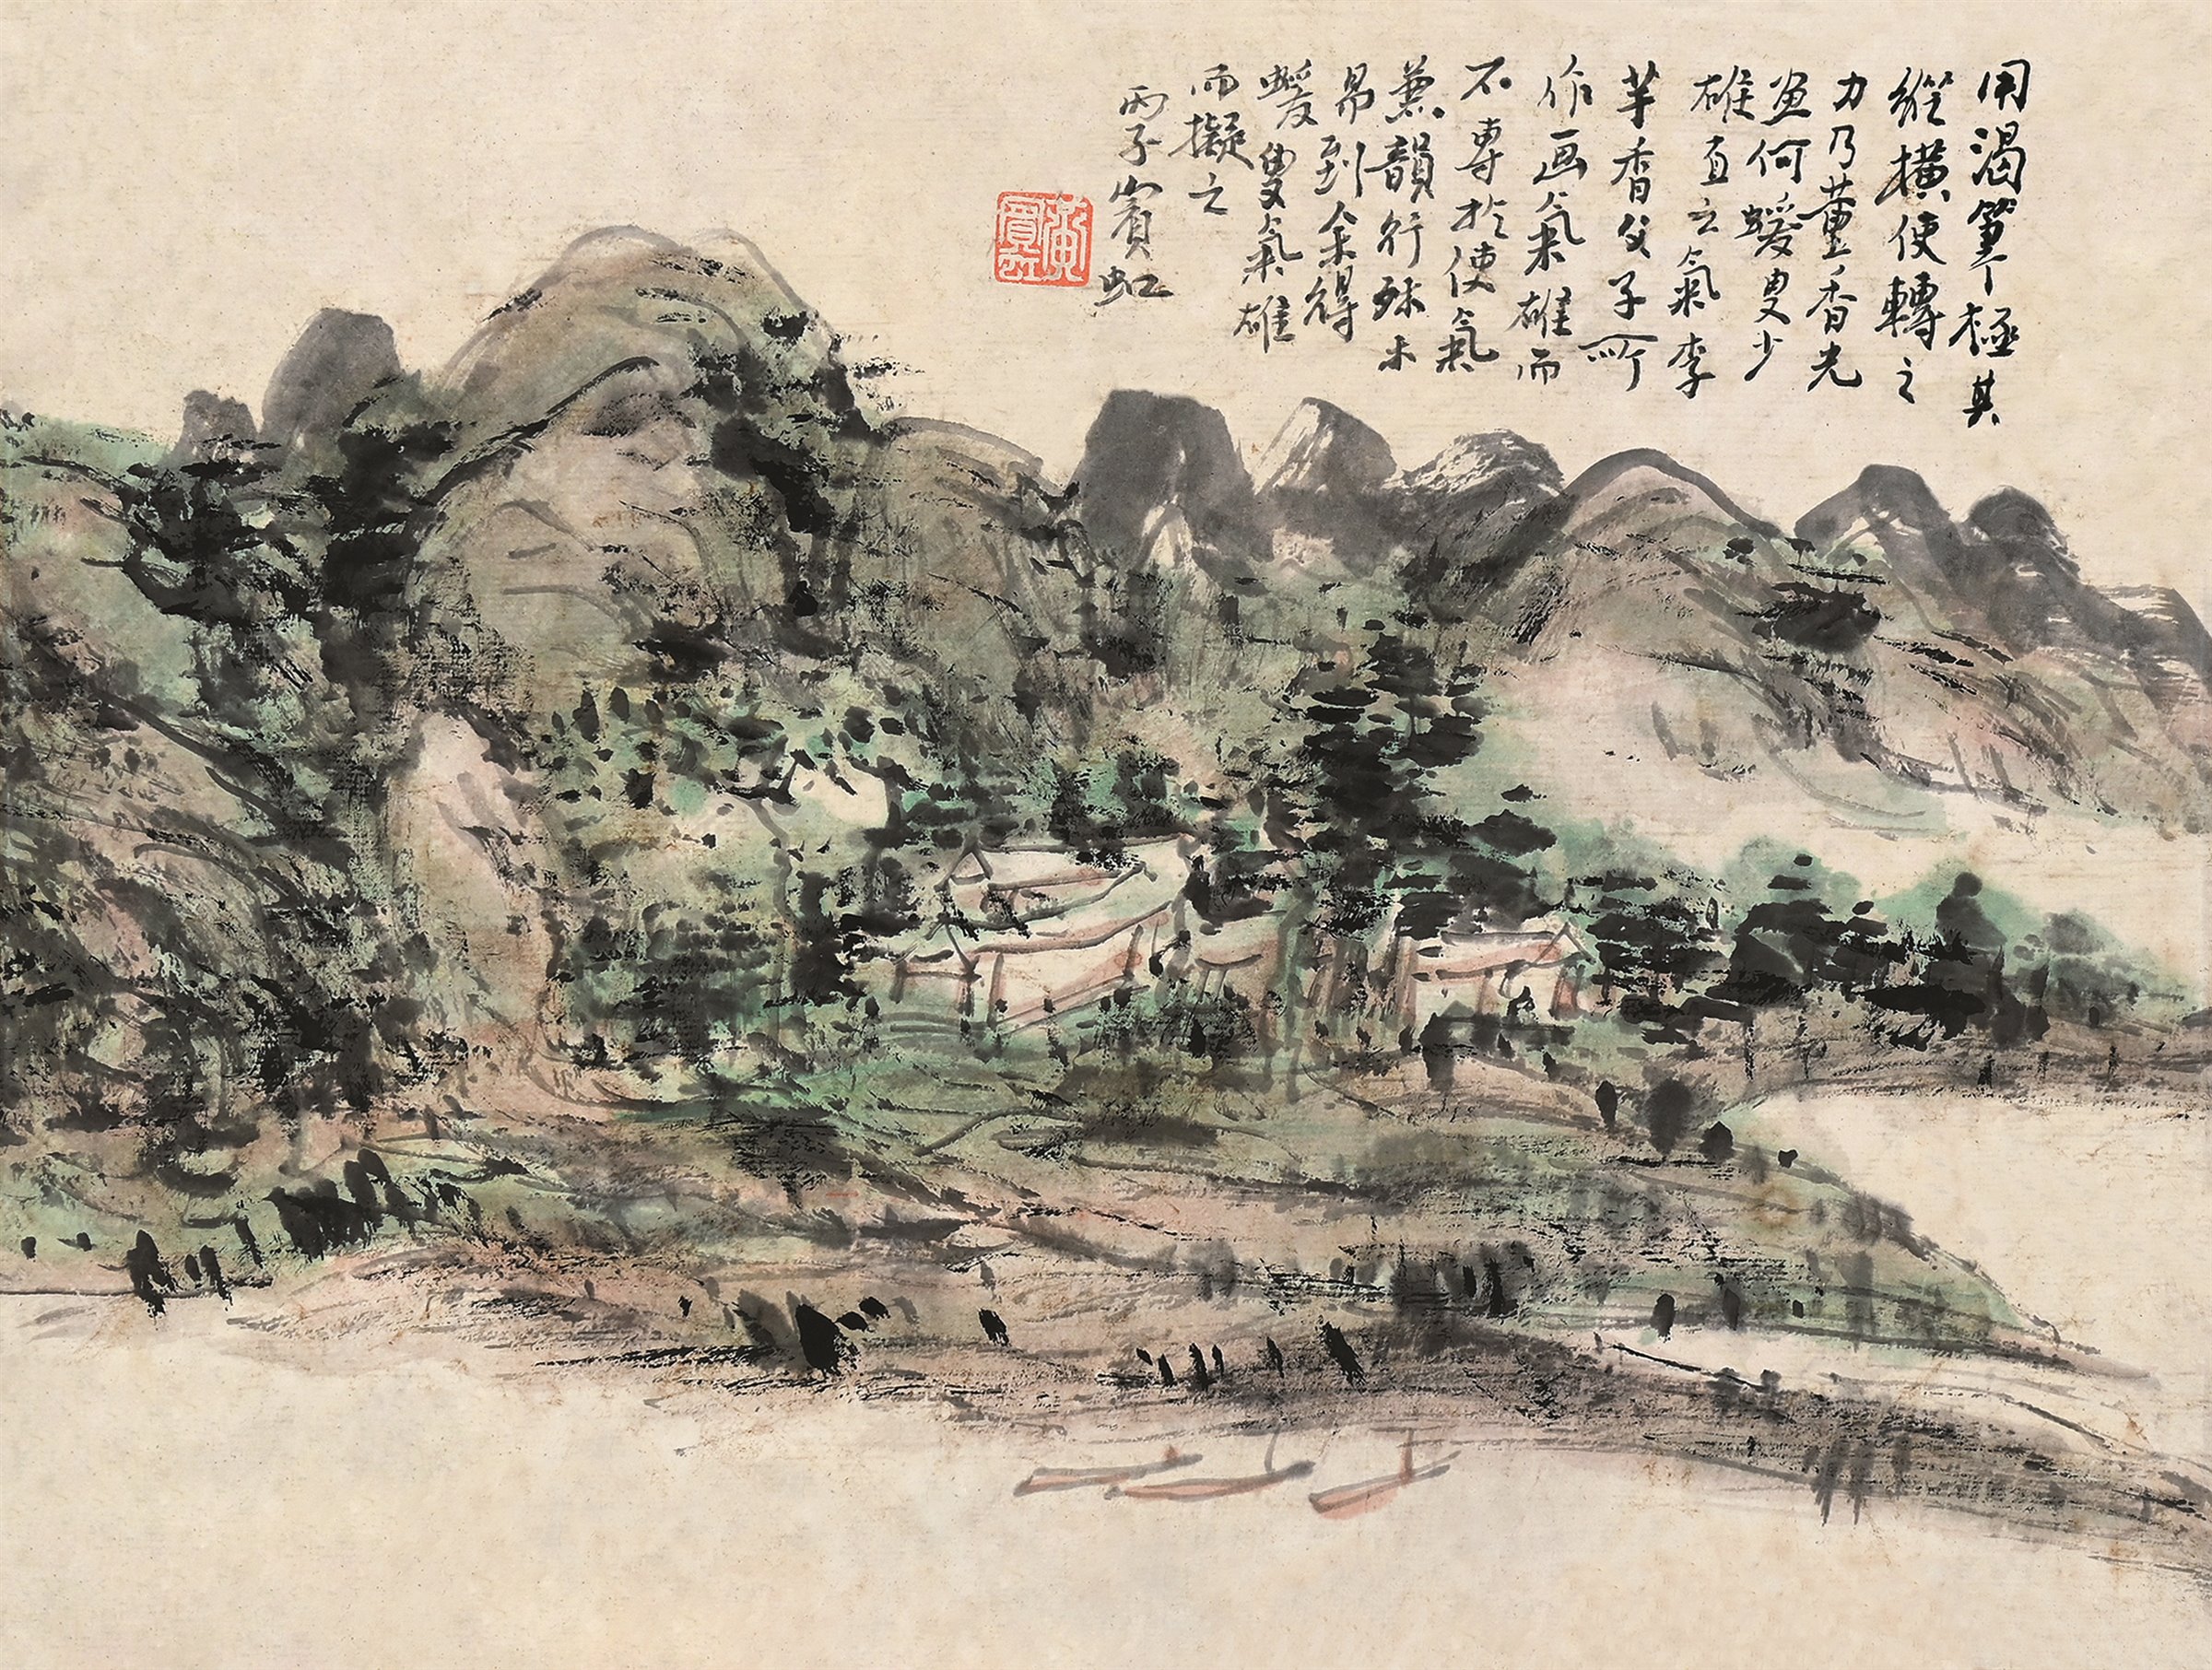 用渴筆極其
縱橫使轉之
力乃董香光
畫何蝯叟少
雄直之氣李
芋香父子所
作画氣雄而
不專於使氣
兼韻行殊未
易到余得
蝯叟氣雄
而擬之
丙子賓虹
黃賓虹